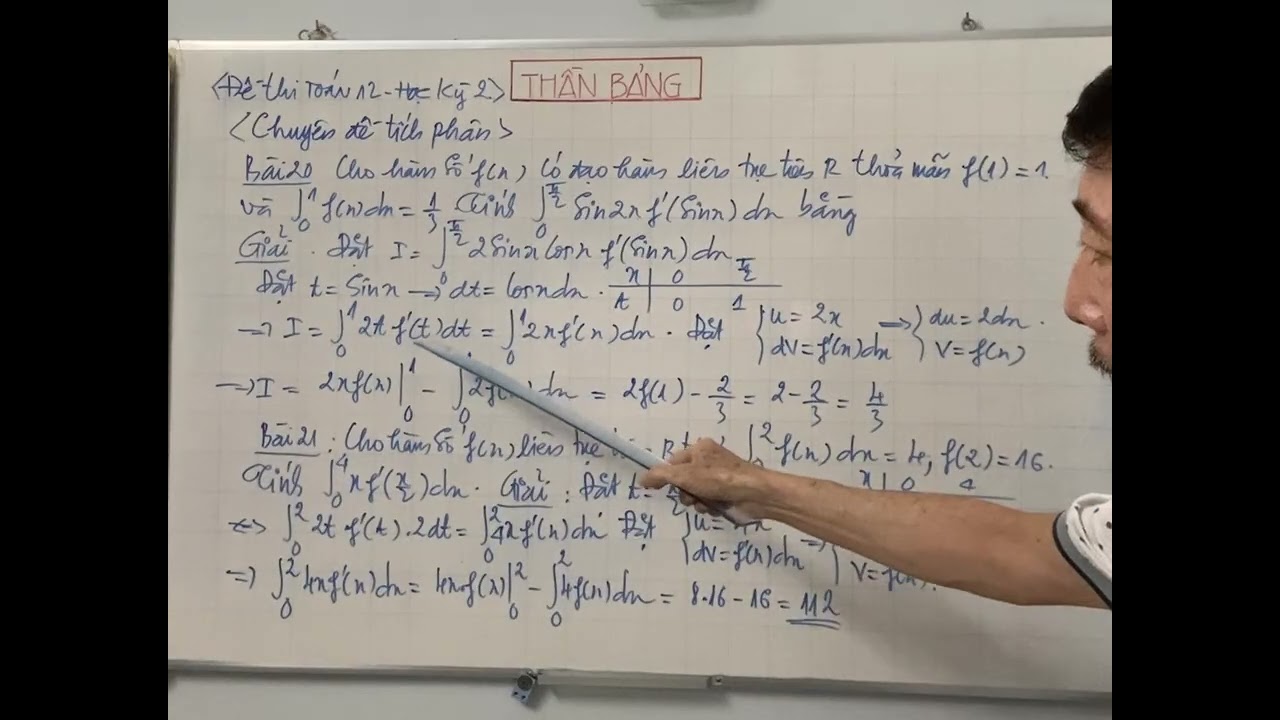 <Đề thi Toán 12 - Học Kỳ 2> THẦN BẢNG
<Chuyên đề tích phân>
Bài 20 Cho hàm số f(x) có đạo hàm liên tục trên R thỏa mãn f(1) = 1.
và ∫₀¹ f(x)dx = 1/3 Tính ∫₀^(π/2) Sin2x f'(Sinx) dx bằng
Giải. Đặt I = ∫₀^(π/2) 2Sinx Cosx f'(Sinx) dx
Đặt t = Sinx → dt = Cosxdx. x | 0 π/2
t | 0 1
→ I = ∫₀¹ 2t f'(t)dt = ∫₀¹ 2xf'(x)dx. Đặt { u = 2x dv = f'(x)dx → { du = 2dx. v = f(x)
→ I = 2xf(x)|₀¹ - ∫₀ 2f( ) dx = 2f(1) - 2/3 = 2 - 2/3 = 4/3
Bài 21: Cho hàm số f(x) liên tục R ∫² f(x)dx = 4, f(2) = 16.
Tính ∫₀⁴ xf'(x/2)dx. Giải: Đặt t = x | 0 4
↔ ∫₀² 2t f'(t).2dt = ∫₀² 4xf'(x)dx Đặt { u = 4x dv = f'(x)dx → { v = f(x).
→ ∫₀² 4xf'(x)dx = 4x.f(x)|₀² - ∫₀² 4f(x)dx = 8.16 - 16 = 112